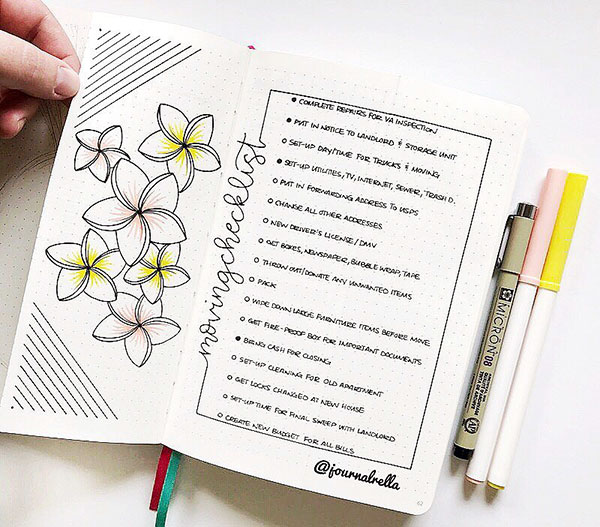 movingchecklist
COMPLETE REPAIRS FOR VA INSPECTION
PUT IN NOTICE TO LANDLORD & STORAGE UNIT
SET-UP DAY/TIME FOR TRUCKS & MOVING
SET-UP UTILITIES, TV, INTERNET, SEWER, TRASH D.
PUT IN FORWARDING ADDRESS TO USPS
CHANGE ALL OTHER ADDRESSES
NEW DRIVER'S LICENSE/DMV
GET BOXES, NEWSPAPER, BUBBLE WRAP, TAPE
THROW OUT/DONATE ANY UNWANTED ITEMS
PACK
WIPE DOWN LARGE FURNITURE ITEMS BEFORE MOVE
GET FIRE-PROOF BOX FOR IMPORTANT DOCUMENTS
BRING CASH FOR CLOSING
SET-UP CLEANING FOR OLD APARTMENT
GET LOCKS CHANGED AT NEW HOUSE
SET-UP TIME FOR FINAL SWEEP WITH LANDLORD
CREATE NEW BUDGET FOR ALL BILLS
@journalrella
MICRON 08